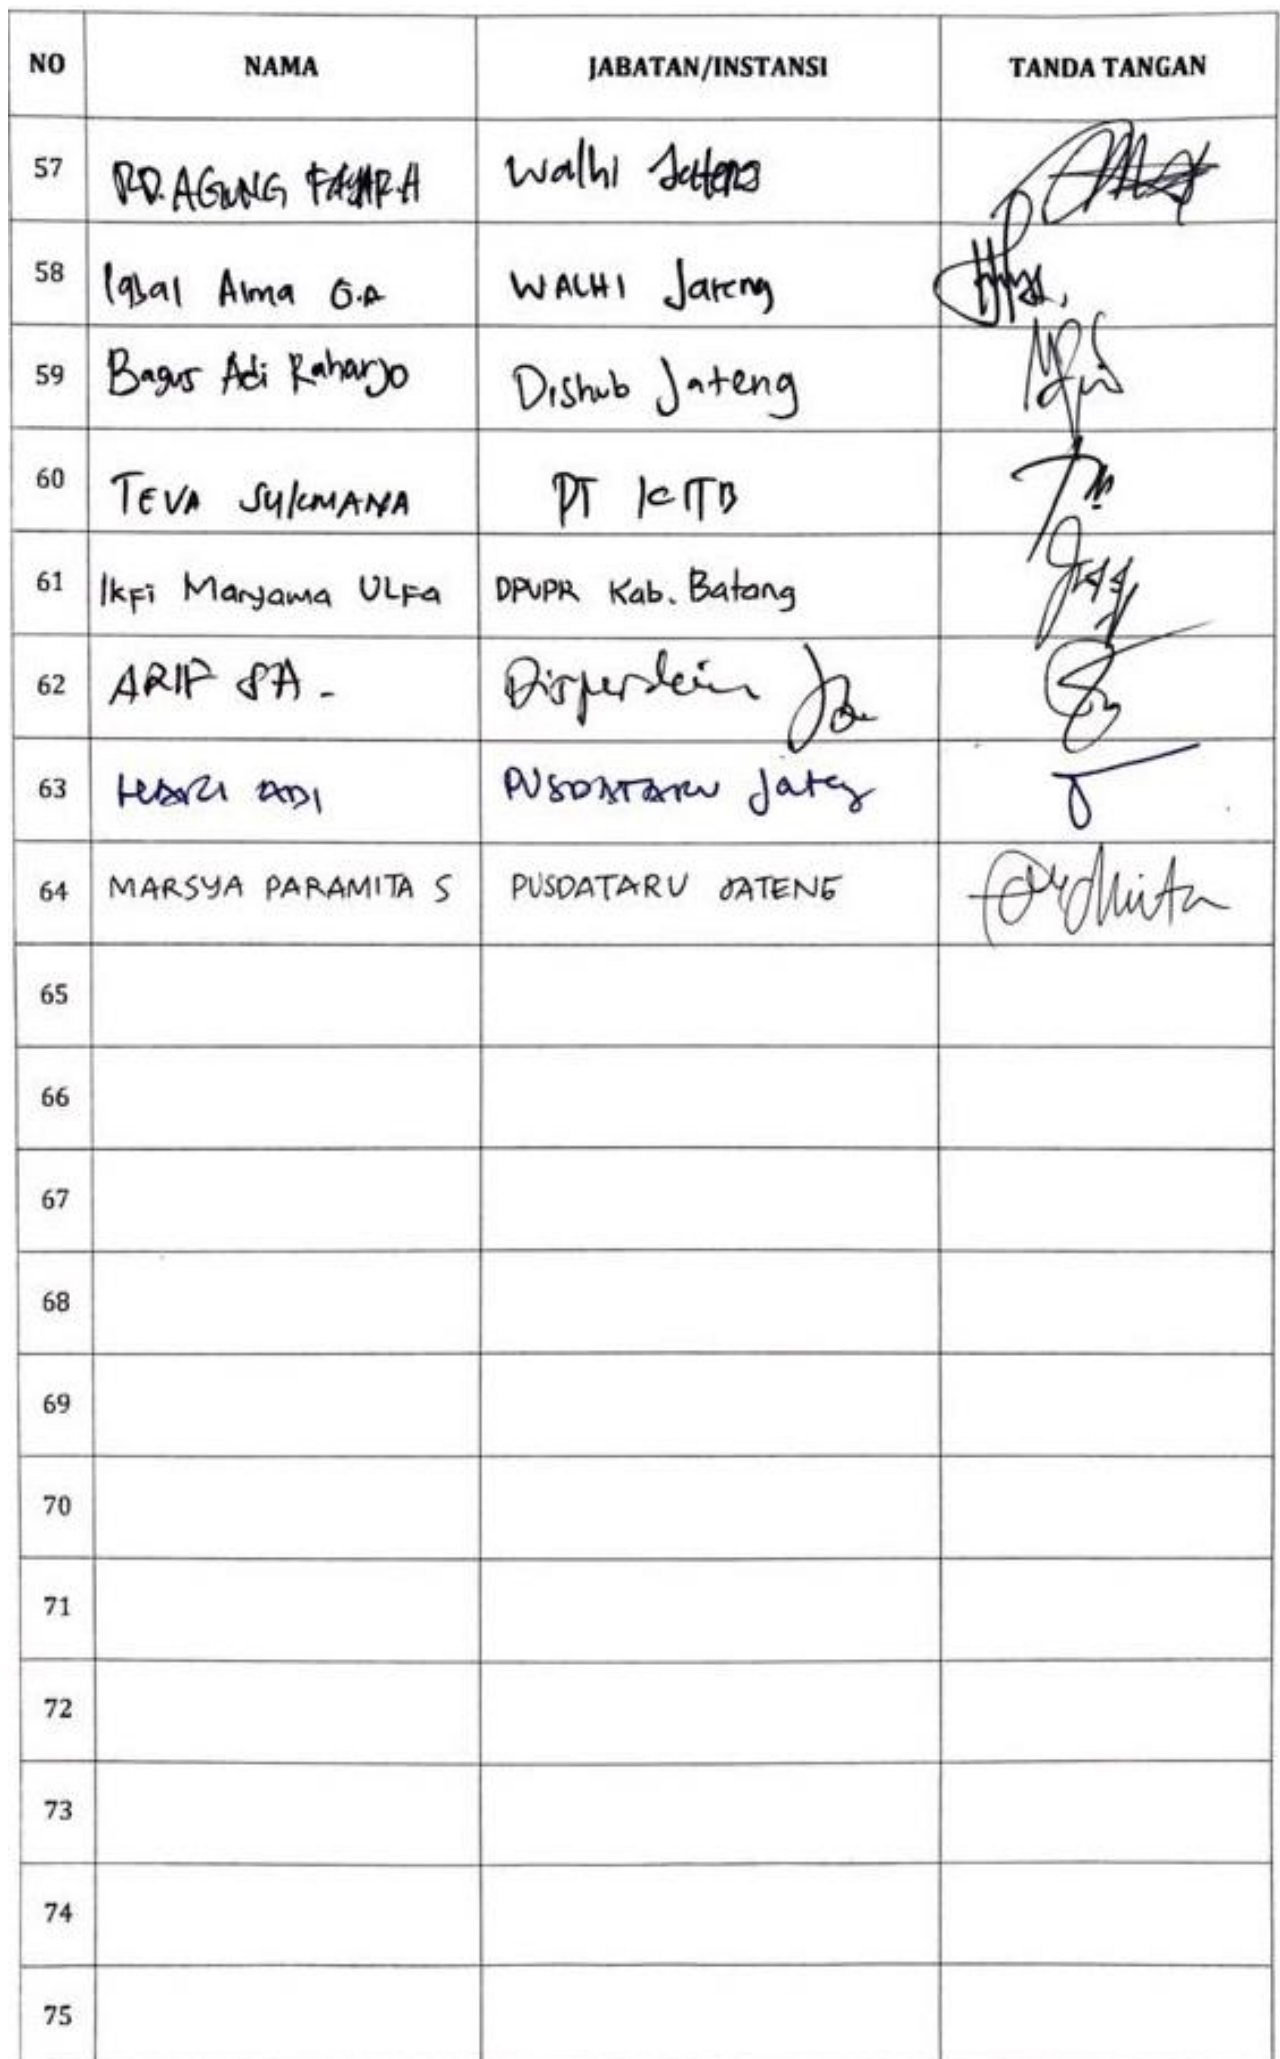 NO NAMA JABATAN/INSTANSI TANDA TANGAN
57 RD. AGUNG FAJAR.H Walhi Jateng
58 Iqbal Alma G.A WALHI Jateng
59 Bagus Adi Raharjo Dishub Jateng
60 TEVA SUKMANA PT KITB
61 Ikfi Maryama ULFa DPUPR Kab. Batang
62 ARIF SA - Disperdein
63 HARI ADI PUSDATARU Jateng
64 MARSYA PARAMITA S PUSDATARU JATENG
65
66
67
68
69
70
71
72
73
74
75